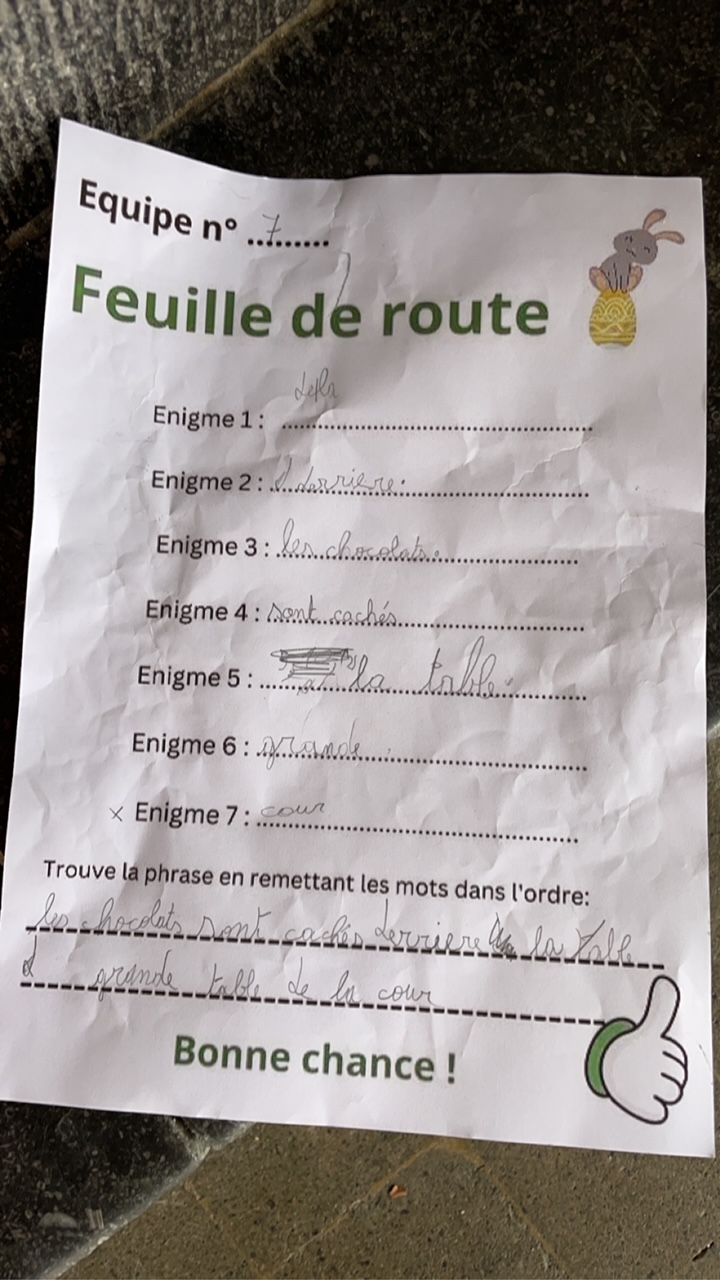 Equipe n° ...7......
Feuille de route
Enigme 1 : de la
Enigme 2 : derrière.
Enigme 3 : les chocolats.
Enigme 4 : sont cachés
Enigme 5 : la table.
Enigme 6 : grande
x Enigme 7 : cour
Trouve la phrase en remettant les mots dans l'ordre:
les chocolats sont cachés derrière la table
d grande table de la cour
Bonne chance !